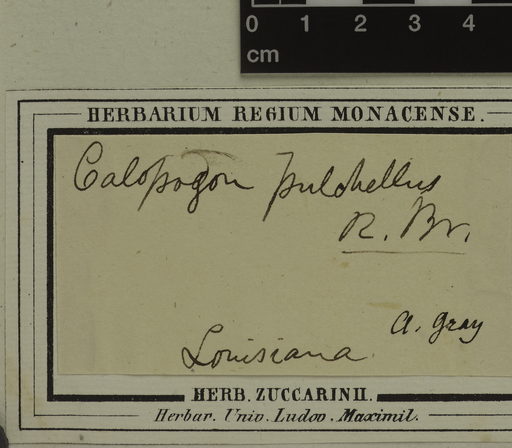 0 1 2 3 4
cm
HERBARIUM REGIUM MONACENSE.
Calopogon pulchellus
R. Br.
A. Gray
Louisiana.
HERB. ZUCCARINII.
Herbar. Univ. Ludov. Maximil.